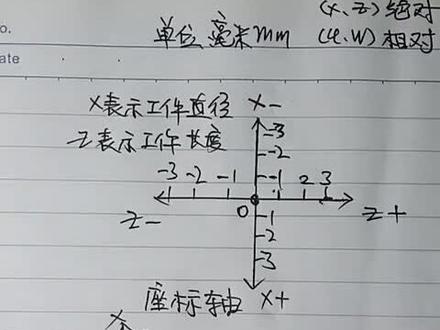 o.
(X、Z)绝对
单位 毫米mm (U、W)相对
ate
X表示工件直径 X-
Z表示工件长度
-3
-2
-3 -2 -1 -1 1 2 3
Z- 0 Z+
-1
-2
-3
座标轴 X+